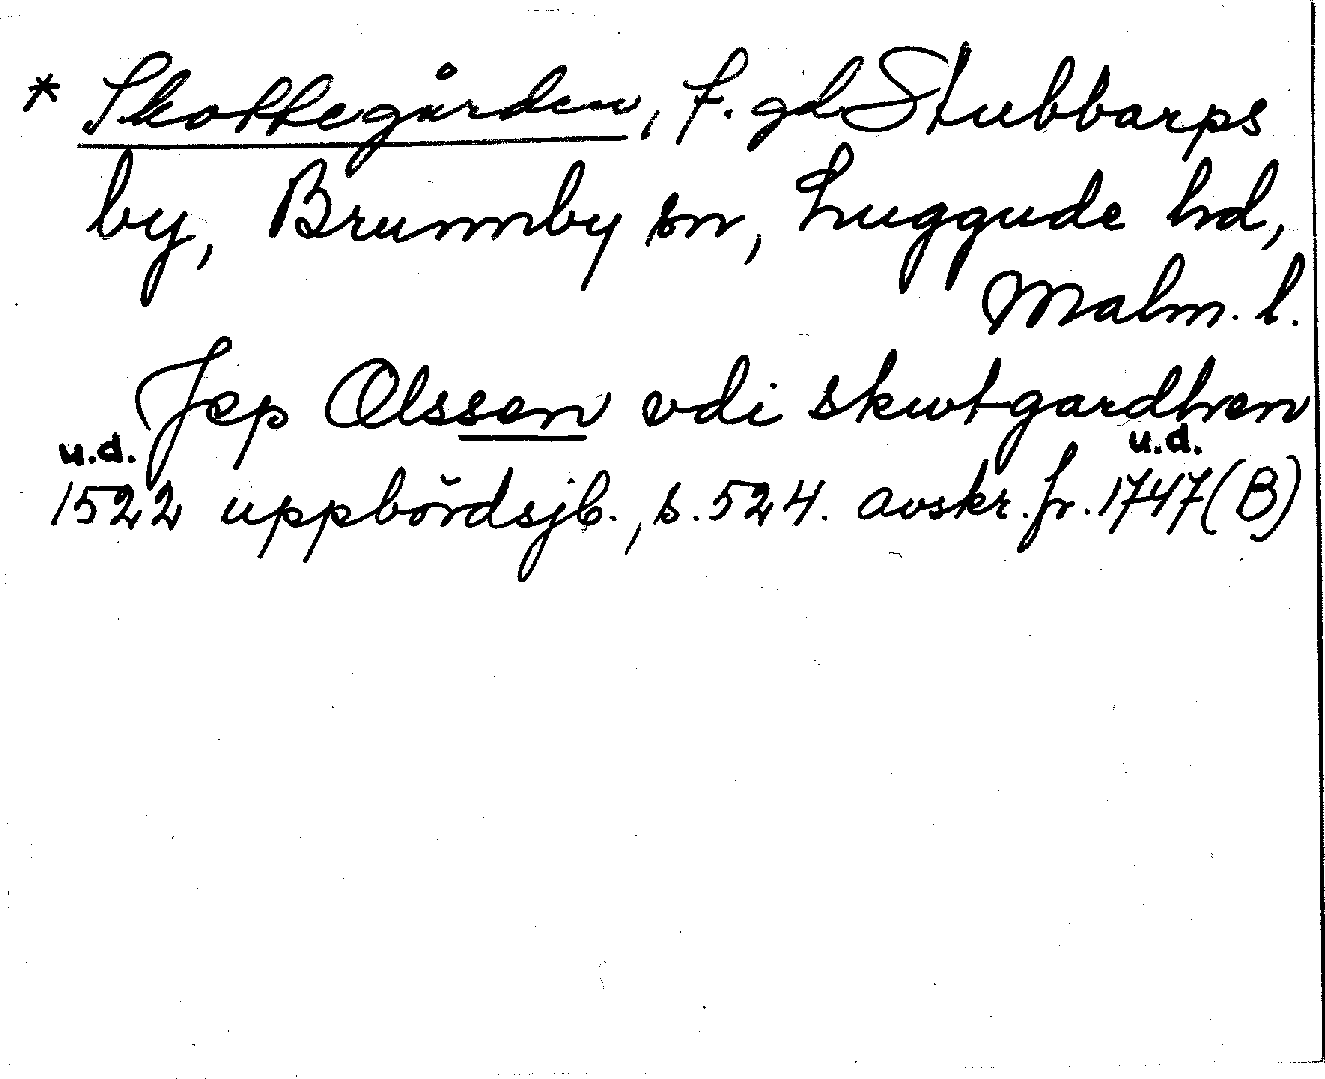 * Skottegården, f. gd Stubbarps
by, Brunnby sn, Luggude hd,
Malm. l.
Jep Olssen vdi skwtgardhen
u.d. u.d.
1522 uppbördsjb., s. 524. avskr. fr. 1747 (B)